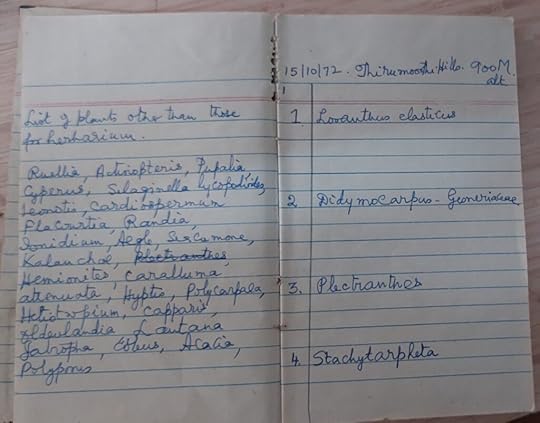 List of plants other than those
for herbarium.
Ruellia, Actinopteris, Pupalia,
Cyperus, Silaginella lycopodioides,
Leonotis, Cardiospermum
Flacourtia Randia,
Ionidium, Aegle, Sercamone,
Kalanchoe, Plectranthes
Hemionites, Caralluma,
attenuata, Hyptis, Polycarpaea,
Heliotropium, Capparis,
Oldenlandia Lantana
Jatropha, Coleus, Acacia,
Polyporus
15/10/72. Thirumoorthi Hills. 900M.
alt
1. Loranthus elasticus
2 Didymocarpus - Gesneriaceae
3. Plectranthes
4. Stachytarpheta